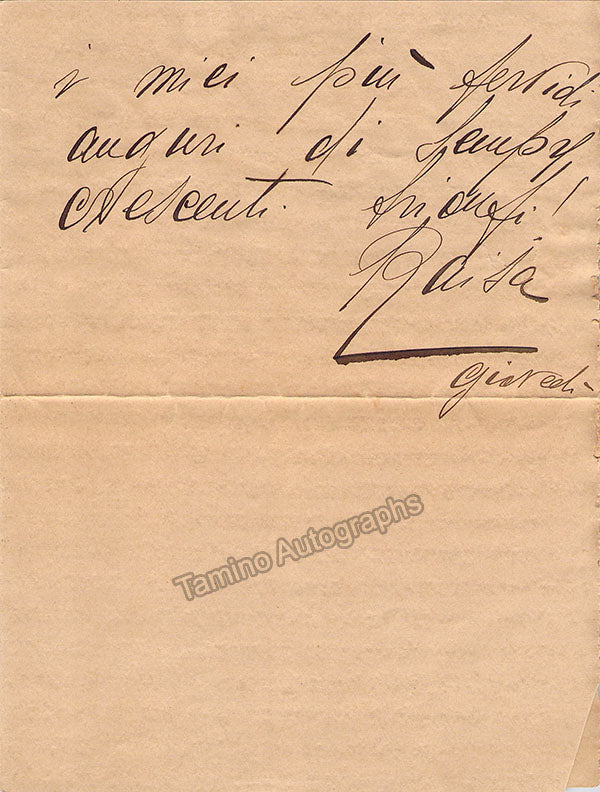 i miei più fervidi
auguri di sempre
crescenti trionfi!
Raisa
Giovedì
Tamino Autographs